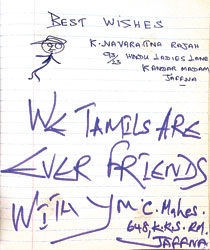 BEST WISHES
K. NAVARATNA RAJAH
93/23 HINDU LADIES LANE
KANDAR MADAM
JAFFNA
WE TAMILS ARE
EVER FRIENDS
WITH
C. Mahes.
648, K.K.S. RD.
JAFFNA